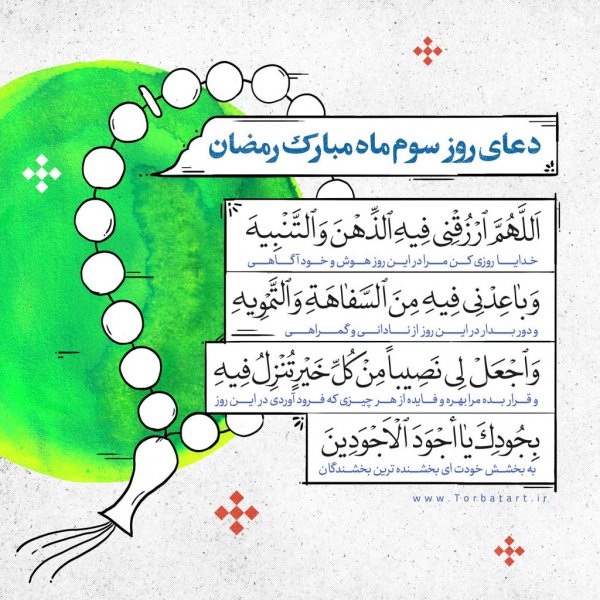 دعای روز سوم ماه مبارک رمضان
اَللَّهُمَّ ٱرْزُقْنِی فِیهِ ٱلذِّهْنَ وَٱلتَّنْبِیهَ
خدایا روزی کن مرا در این روز هوش و خودآگاهی
وَبٰاعِدْنِی فِیهِ مِنَ ٱلسَّفٰاهَةِ وَٱلتَّمْوِیهِ
و دور بدار در این روز از نادانی و گمراهی
وَٱجْعَلْ لِی نَصِیباً مِنْ کُلِّ خَیْرٍ تُنْزِلُ فِیهِ
و قرار بده مرا بهره و فایده از هر چیزی که فرود آوردی در این روز
بِجُودِكَ یٰا أَجْوَدَ ٱلْأَجْوَدِینَ
به بخشش خودت ای بخشنده ترین بخشندگان
www.Torbatart.ir